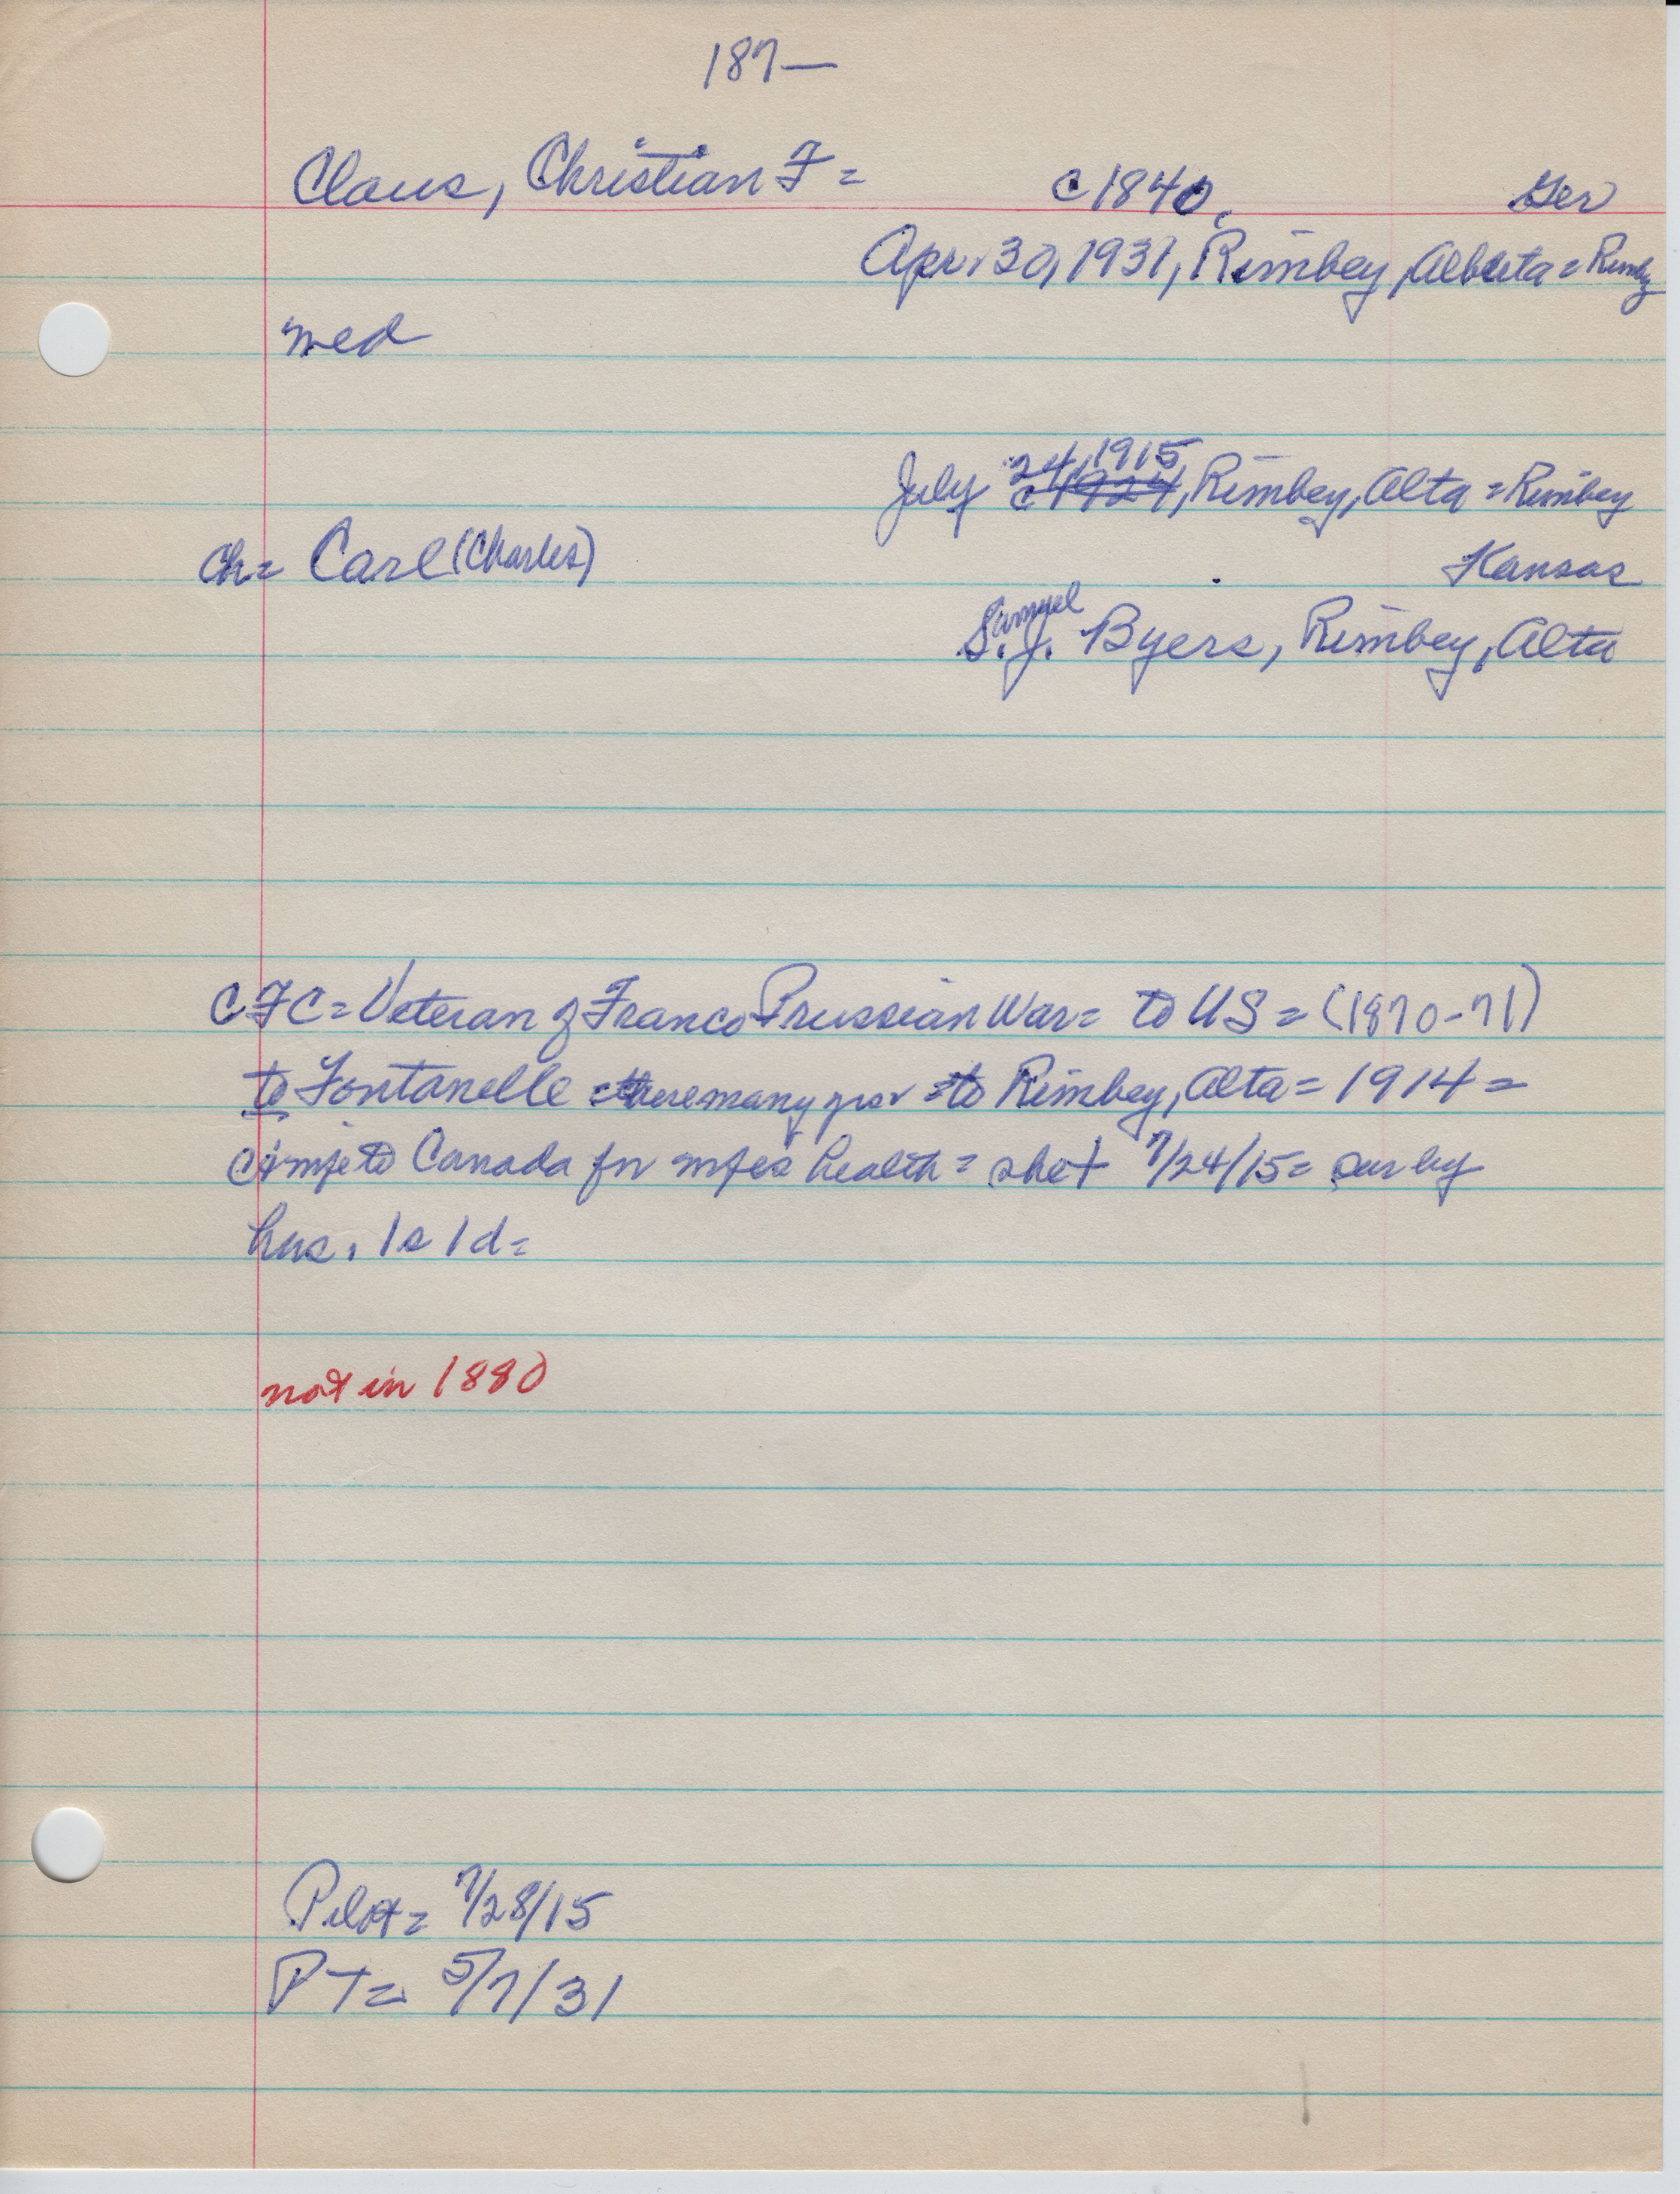 187—
Claus, Christian F = c1840, Ger
Apr. 30, 1931, Rimbey, Alberta = Rimby
med
24, 1915
July c1924, Rimbey, Alta = Rimbey
ch = Carl (Charles) Kansas
Samuel
S. J. Byers, Rimbey, Alta
CFC = Veteran of Franco Prussian War = to US = (1870-71)
to Fontanelle = there many yrs = to Rimbey, Alta = 1914 =
to Canada for wfes health = she + 7/24/15 = sur by
hus. 1s 1d =
not in 1880
Pilot = 7/28/15
PT = 5/7/31